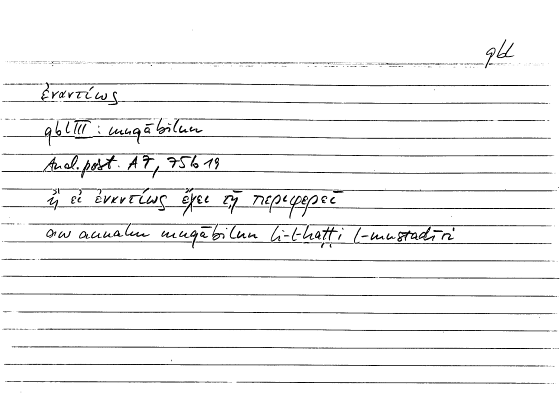 qbl
ἐναντίως
qbl III : muqābilun
Anal. post. A7, 75b19
ἢ εἰ ἐναντίως ἔχει τῇ περιφερεῖ
aw annahu muqābilun li-l-ḫaṭṭi l-mustadīri